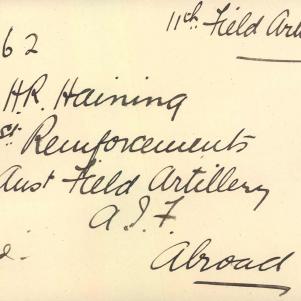 11th Field Arti
62
H.R. Haining
st Reinforcements
Aust Field Artillery
A.I.F
Abroad